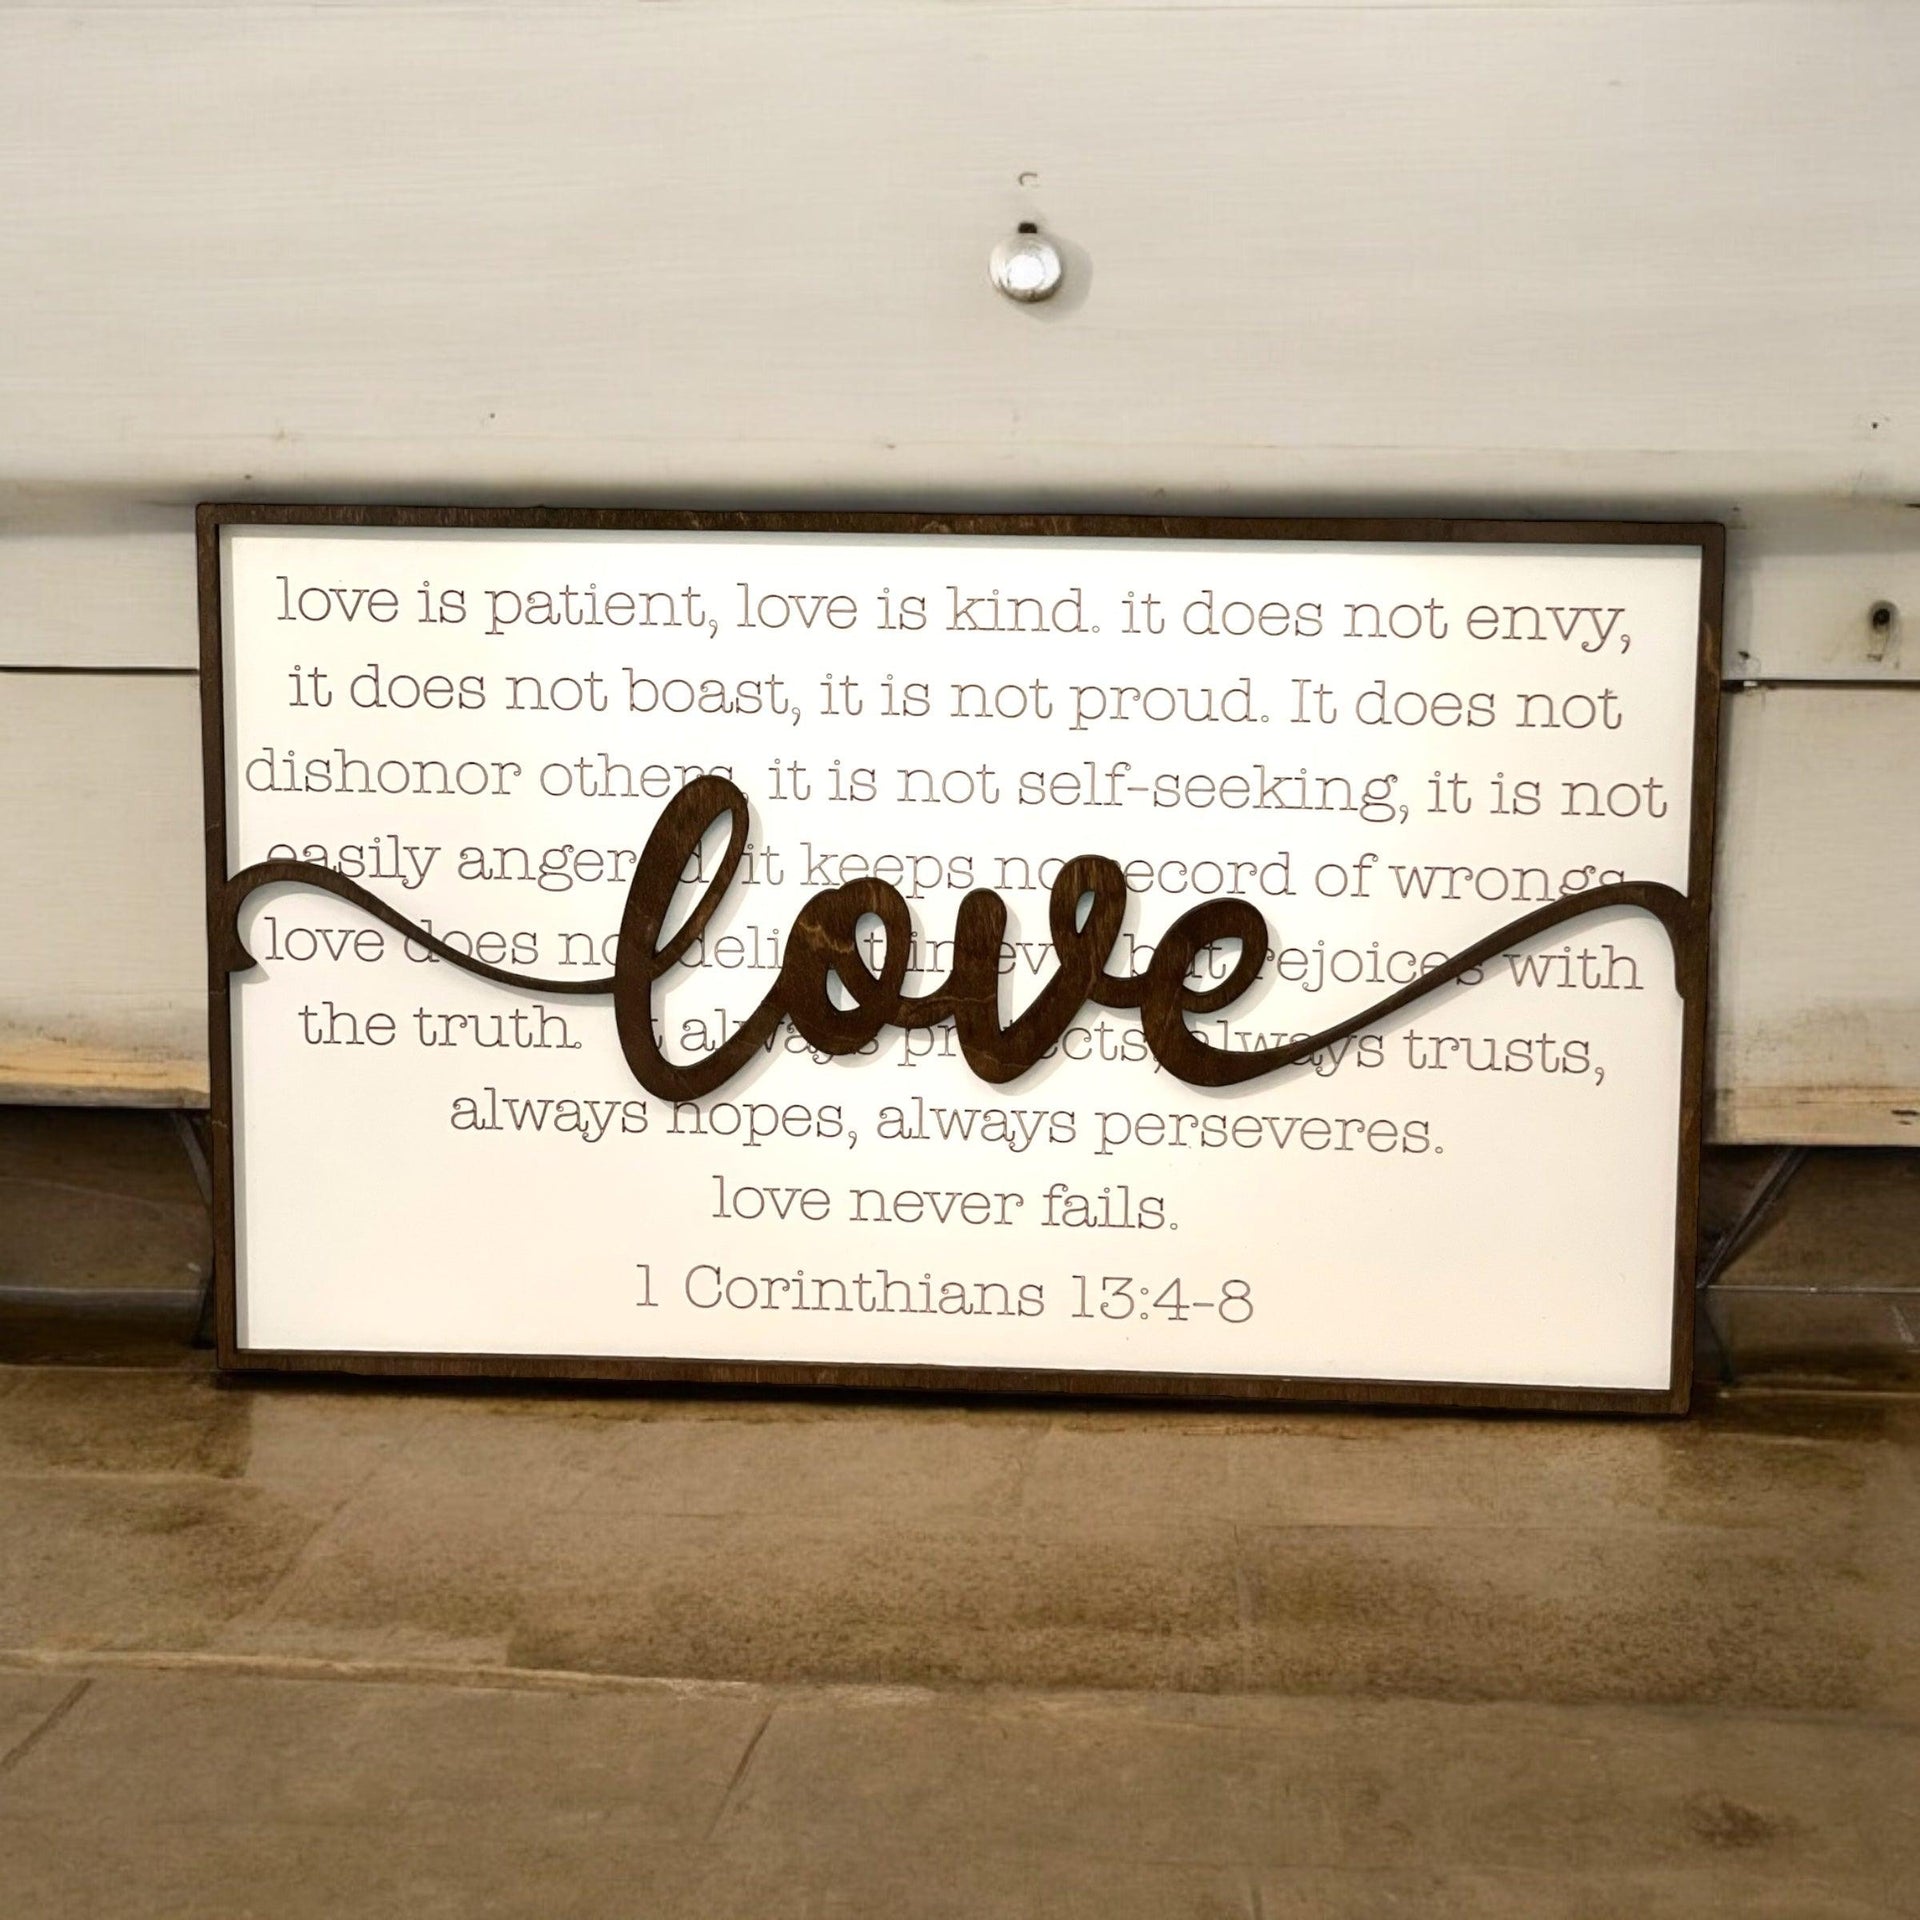 love is patient, love is kind. it does not envy,
it does not boast, it is not proud. It does not
dishonor others, it is not self-seeking, it is not
easily angered, it keeps no record of wrongs.
love does not delight in evil but rejoices with
the truth. It always protects, always trusts,
always hopes, always perseveres.
love never fails.
1 Corinthians 13:4-8
love